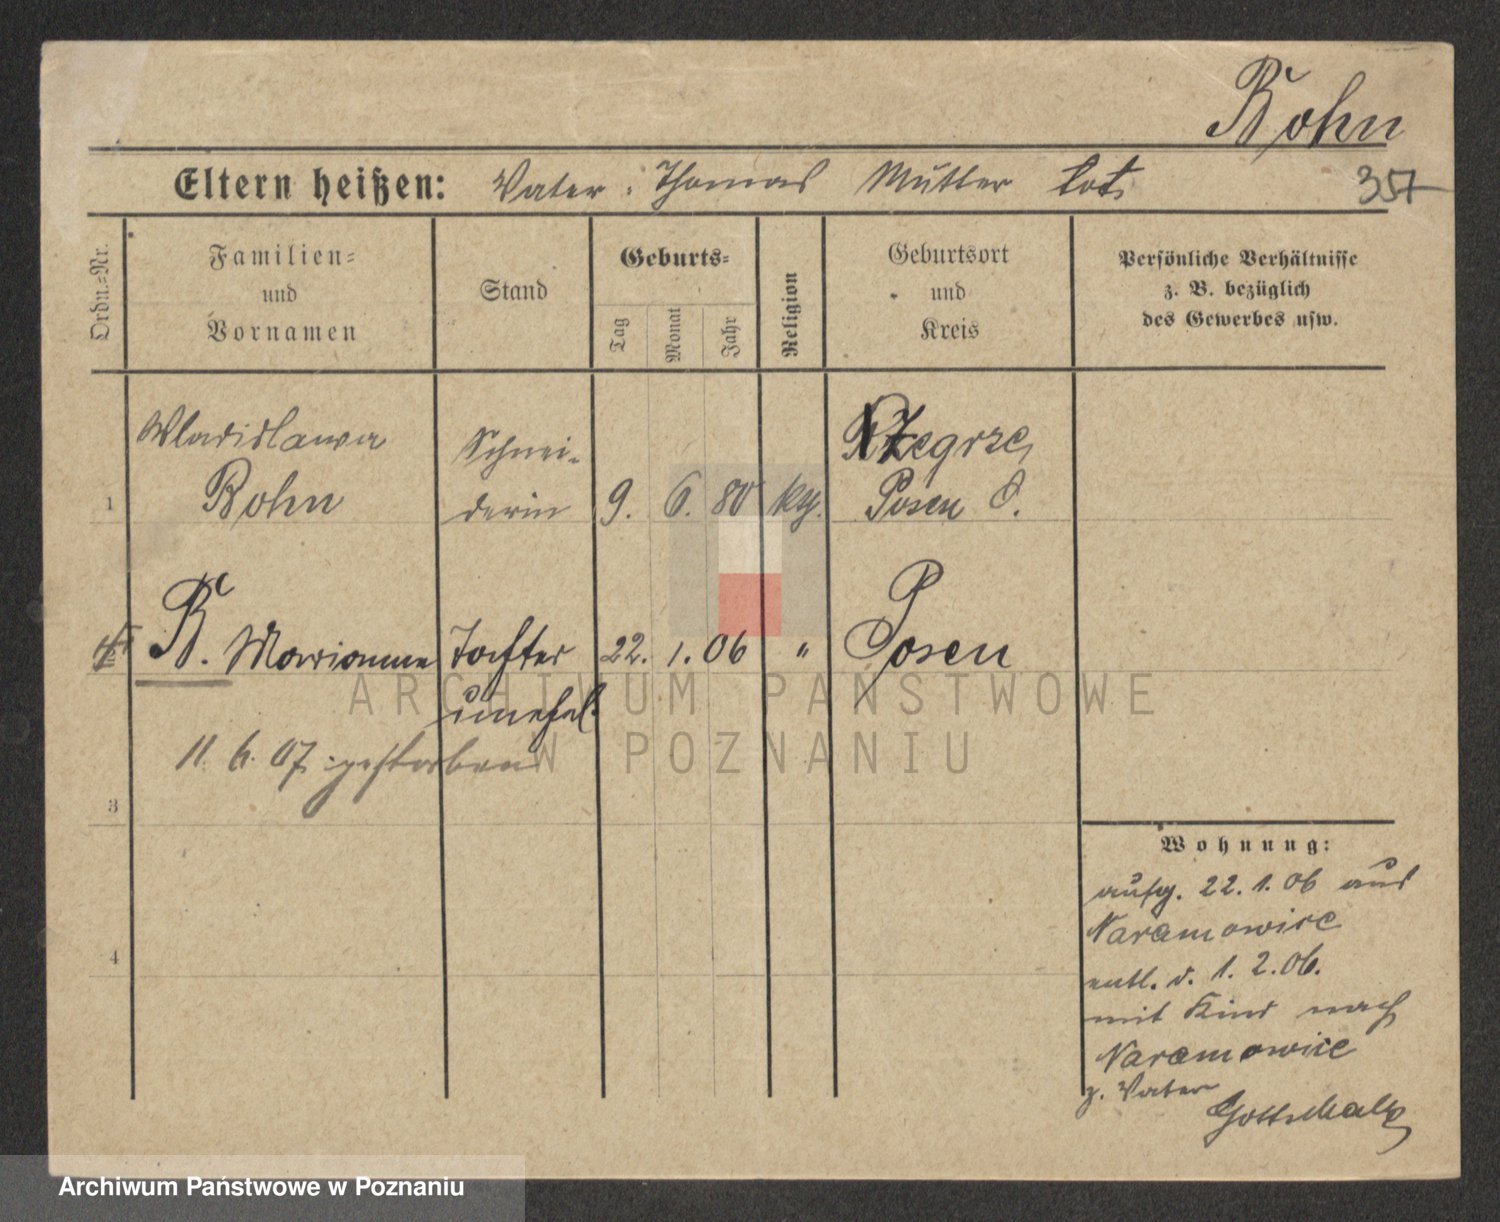 Rohn
Eltern heißen: Vater: Thomas Mutter tot.
357
Ordn.-Nr.
Familien-
und
Vornamen
Stand
Geburts-
Tag
Monat
Jahr
Religion
Geburtsort
und
Kreis
Persönliche Verhältnisse
z. B. bezüglich
des Gewerbes usw.
Wladislawa
Rohn
Schnei-
derin
1
9. 6. 80
Posen O.
R. Marianna Tochter 22. 1. 06 " Posen
unehel.
11. 6. 07 gestorben
3
Wohnung:
aufg. 22. 1. 06 aus
Naramowice
entl. d. 1. 2. 06.
mit Kind nach
Naramowice
z. Vater
4
ARCHIWUM PAŃSTWOWE
W POZNANIU
Archiwum Państwowe w Poznaniu